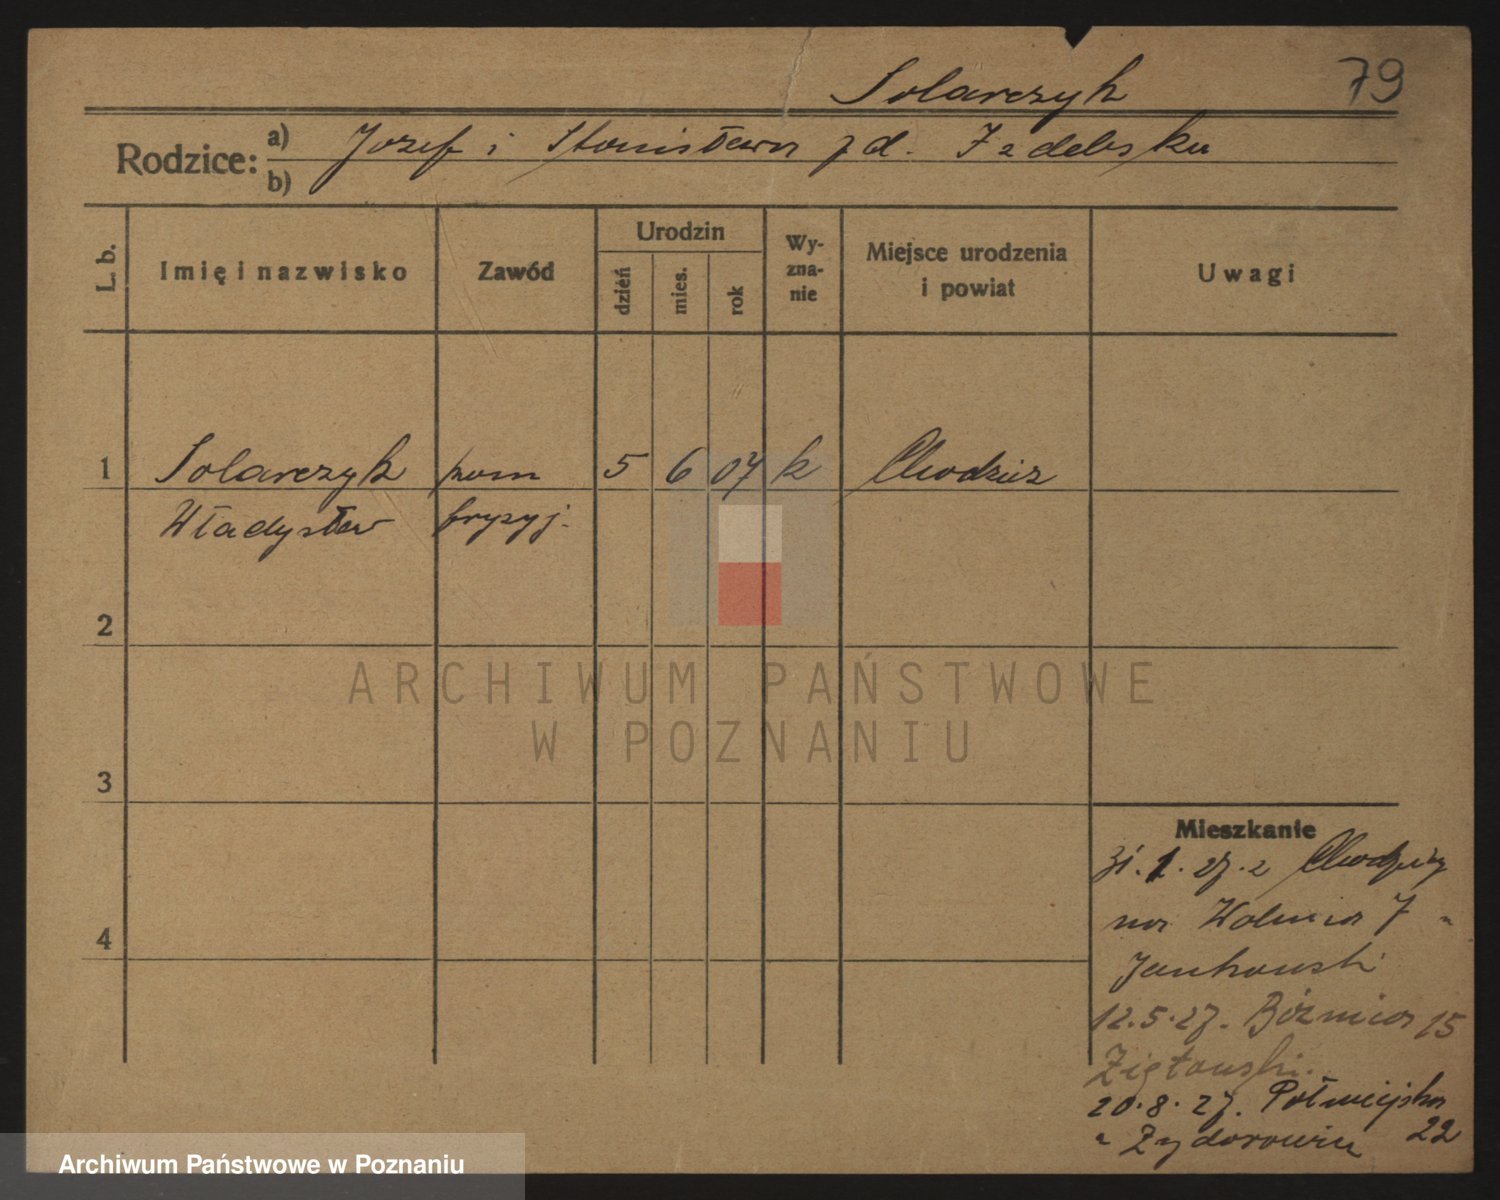 Solarczyk 79
Rodzice: a) Jozef i Stanisława z d. Izdebska
b)
L. b. Imię i nazwisko Zawód Urodzin dzień mies. rok Wy-zna-nie Miejsce urodzenia i powiat Uwagi
1 Solarczyk pom 5 6 07 k Chodzież
Władysław fryzyj.
2
3
4
Mieszkanie
31.1.27. z Chodzieży
na Wolnica 7
Jankowski
12.5.27. Bóżnica 15
Ziętowski.
20.8.27. Półwiejska 22
ARCHIWUM PAŃSTWOWE
W POZNANIU
Archiwum Państwowe w Poznaniu